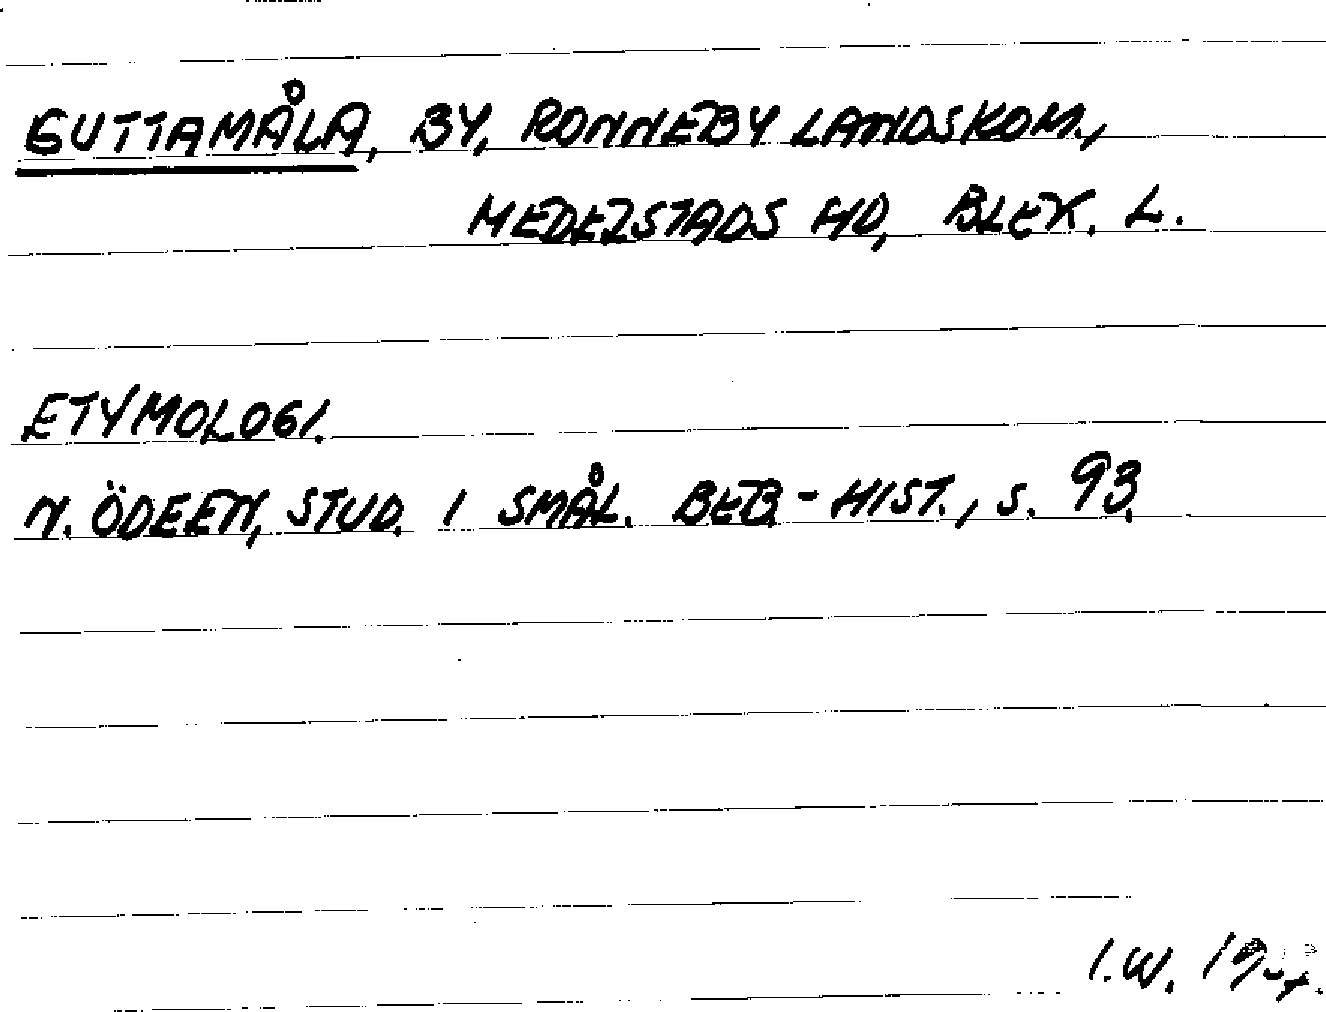 GUTTAMÅLA, BY, RONNEBY LANDSKOM.,
MEDELSTADS HD, BLEK. L.
ETYMOLOGI.
N. ÖDEEN, STUD. I SMÅL. BEB.-HIST., S. 93.
I.W.